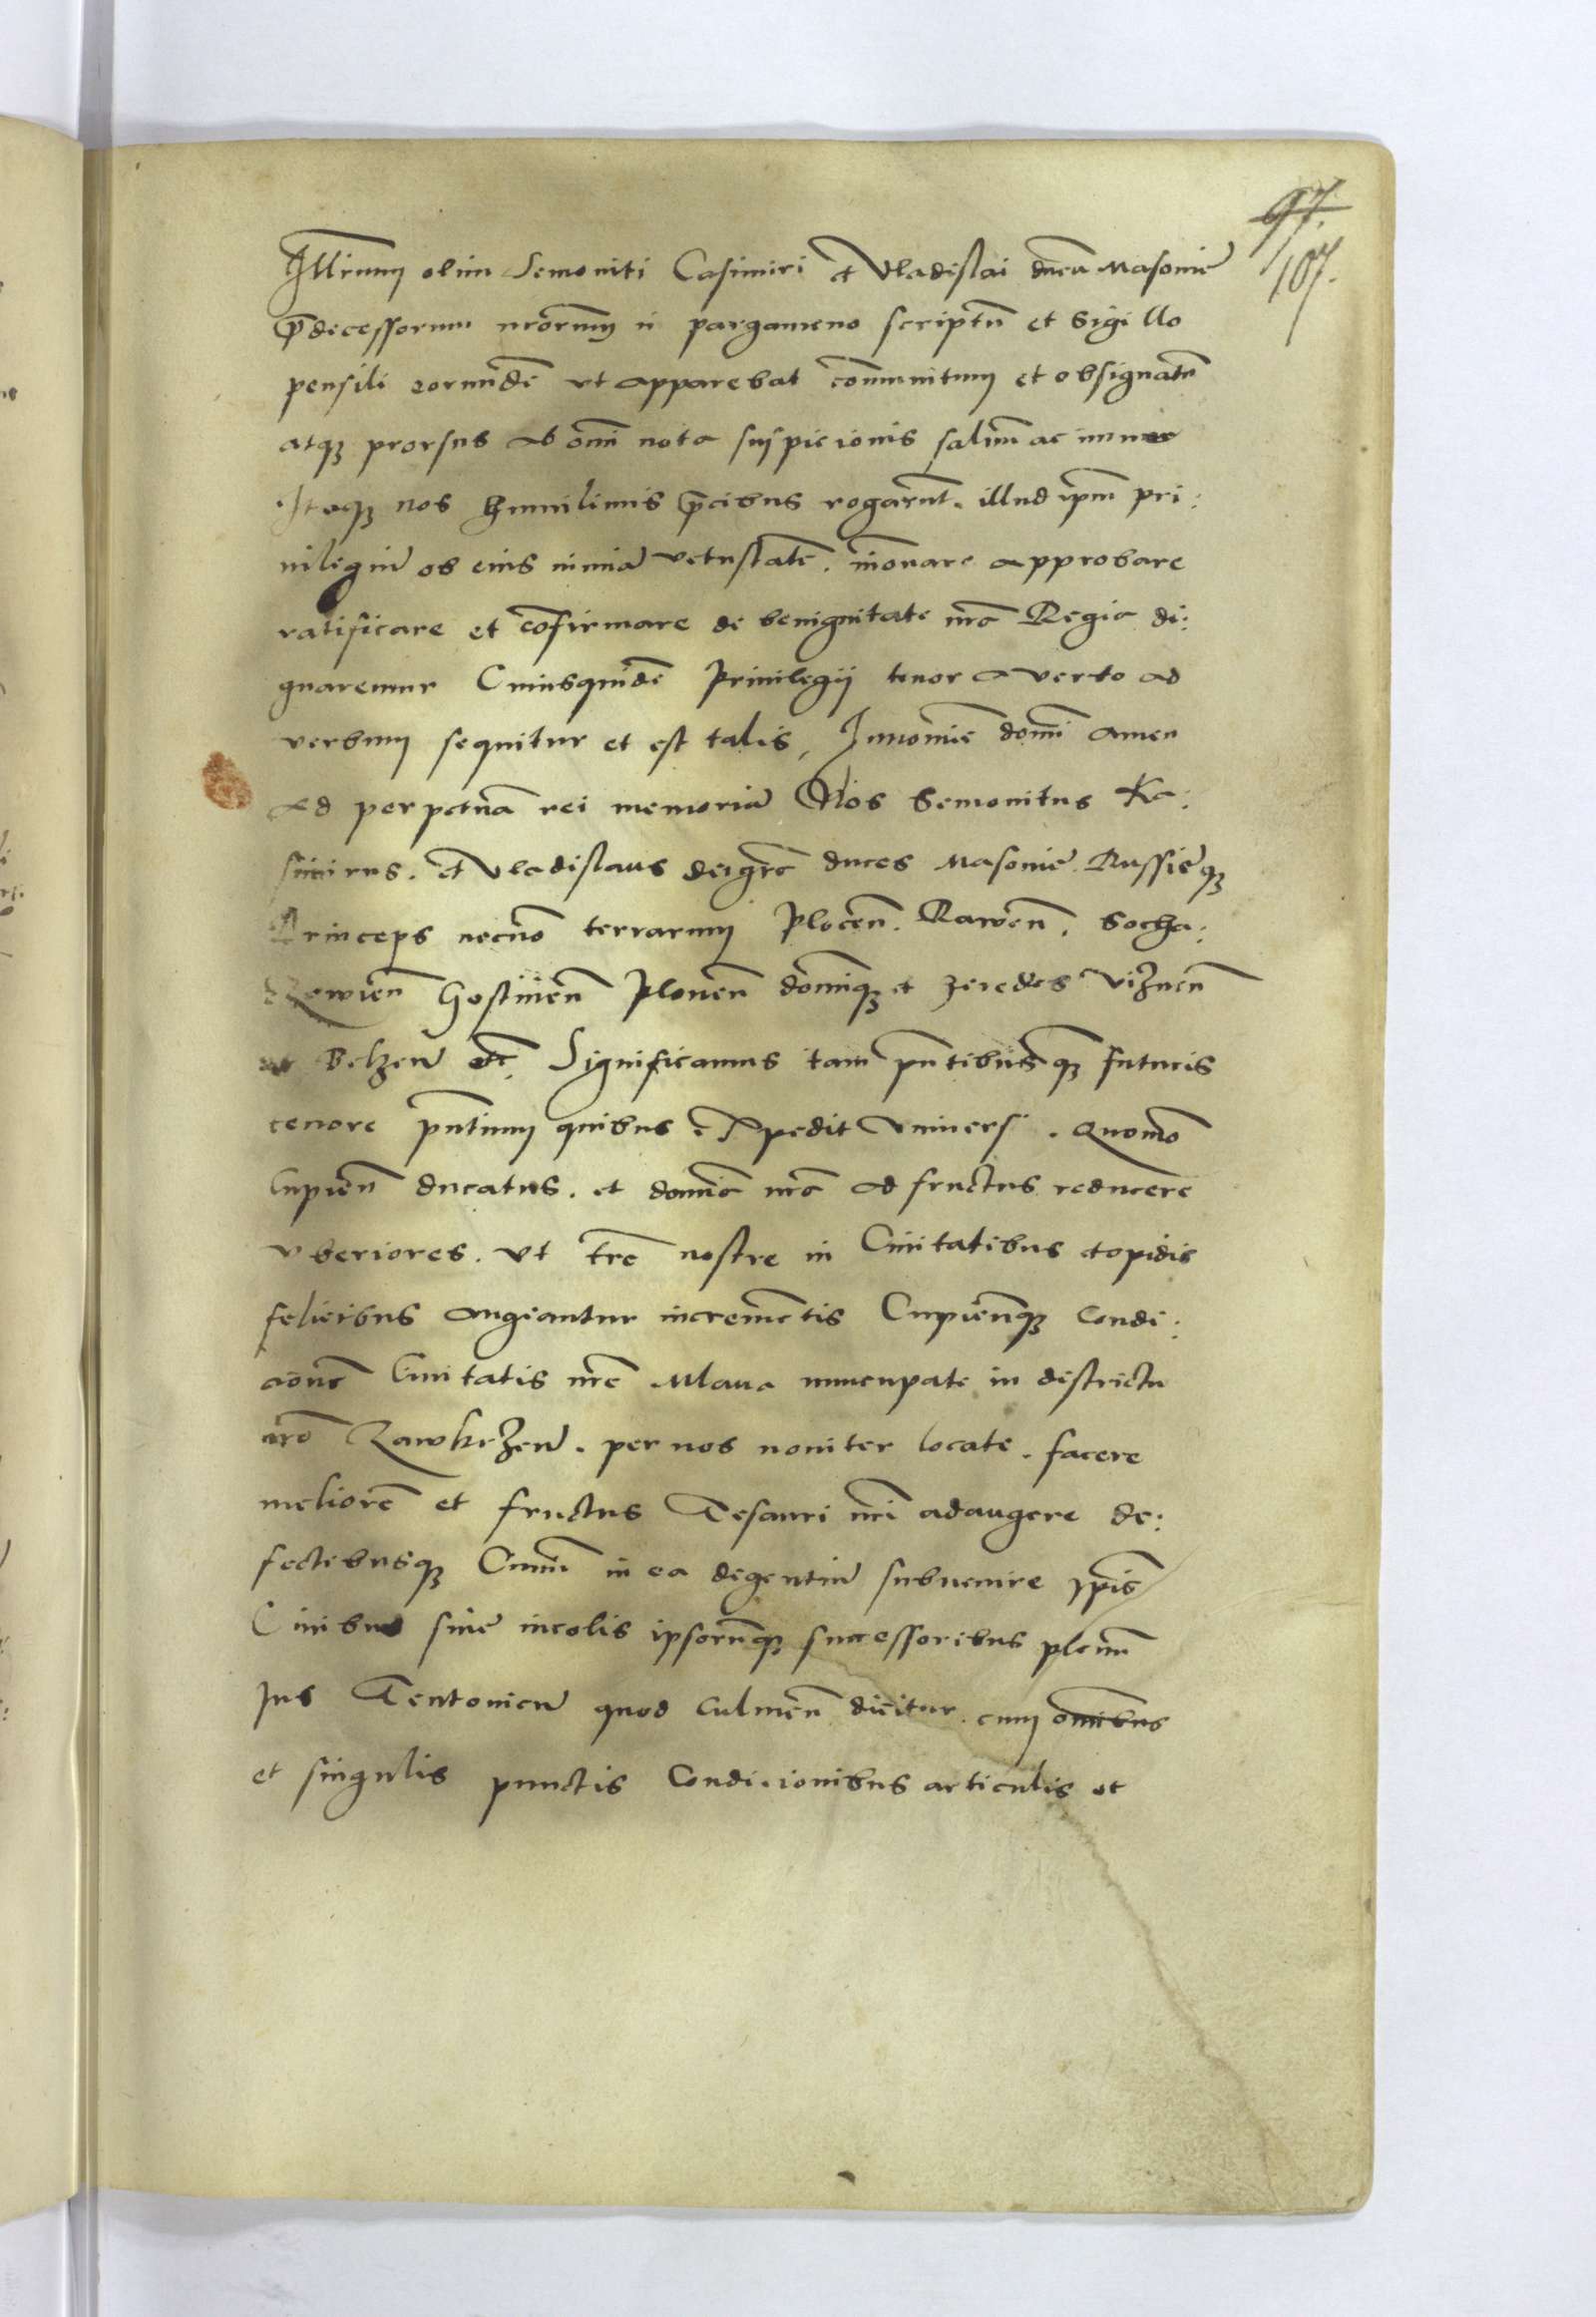 97.
107.
Illrium olim Semoviti Casimiri et Vladislai ducū Masovie
p̄decessorum nrorum in pargameno scriptū et sigillo
pensili eorundē ut apparebat cōmunitum et obsignatū
atq̄ prorsus ab omī nota suspicionis salvum ac immune
Itaq̄ nos humilimis p̄cibus rogarunt. illud ipm pri:
vilegiū ob eius nimiā vetustatē. innovare approbare
ratificare et cōfirmare de benignitate nrā Regia di:
gnaremur Cuiusquidē Privilegij tenor a verbo ad
verbum sequitur et est talis, Innomīe domī amen
Ad perpetuā rei memoriā Nos Semovitus Ka:
simirus. et Vladislaus dei gr̄a duces Masovie Russieq̄
Princeps necnō terrarum Plocen̄. Rawen̄. Socha:
czewien̄ Gostinen̄ Plonen̄ dominiq̄ et heredes Viznen̄
ac Belzen̄ etc̄ Significamus tam pn̄tibus q̄ futuris
tenore pn̄tium quibus expedit universi. quomō
Cupien̄ ducatus. et domīa nrā ad fructus reducere
uberiores. ut tr̄e nostre in Civitatibus et opidis
felicibus augeantur incremētis Cupienq̄ Condi:
cionē Civitatis nr̄e Mlava nuncupate in districtu
nrō Zawkrzen̄. per nos noviter locate. facere
meliorē et fructus Tesauri nrī adaugere de:
fectibusq̄ Civium in ea degentiū subvenire ipīs
Civibus sive incolis ipsorūq̄ successoribus plenum
Jus Teutonicū quod Culmen̄ dicitur. cum omībus
et singulis punctis Condicionibus articulis et